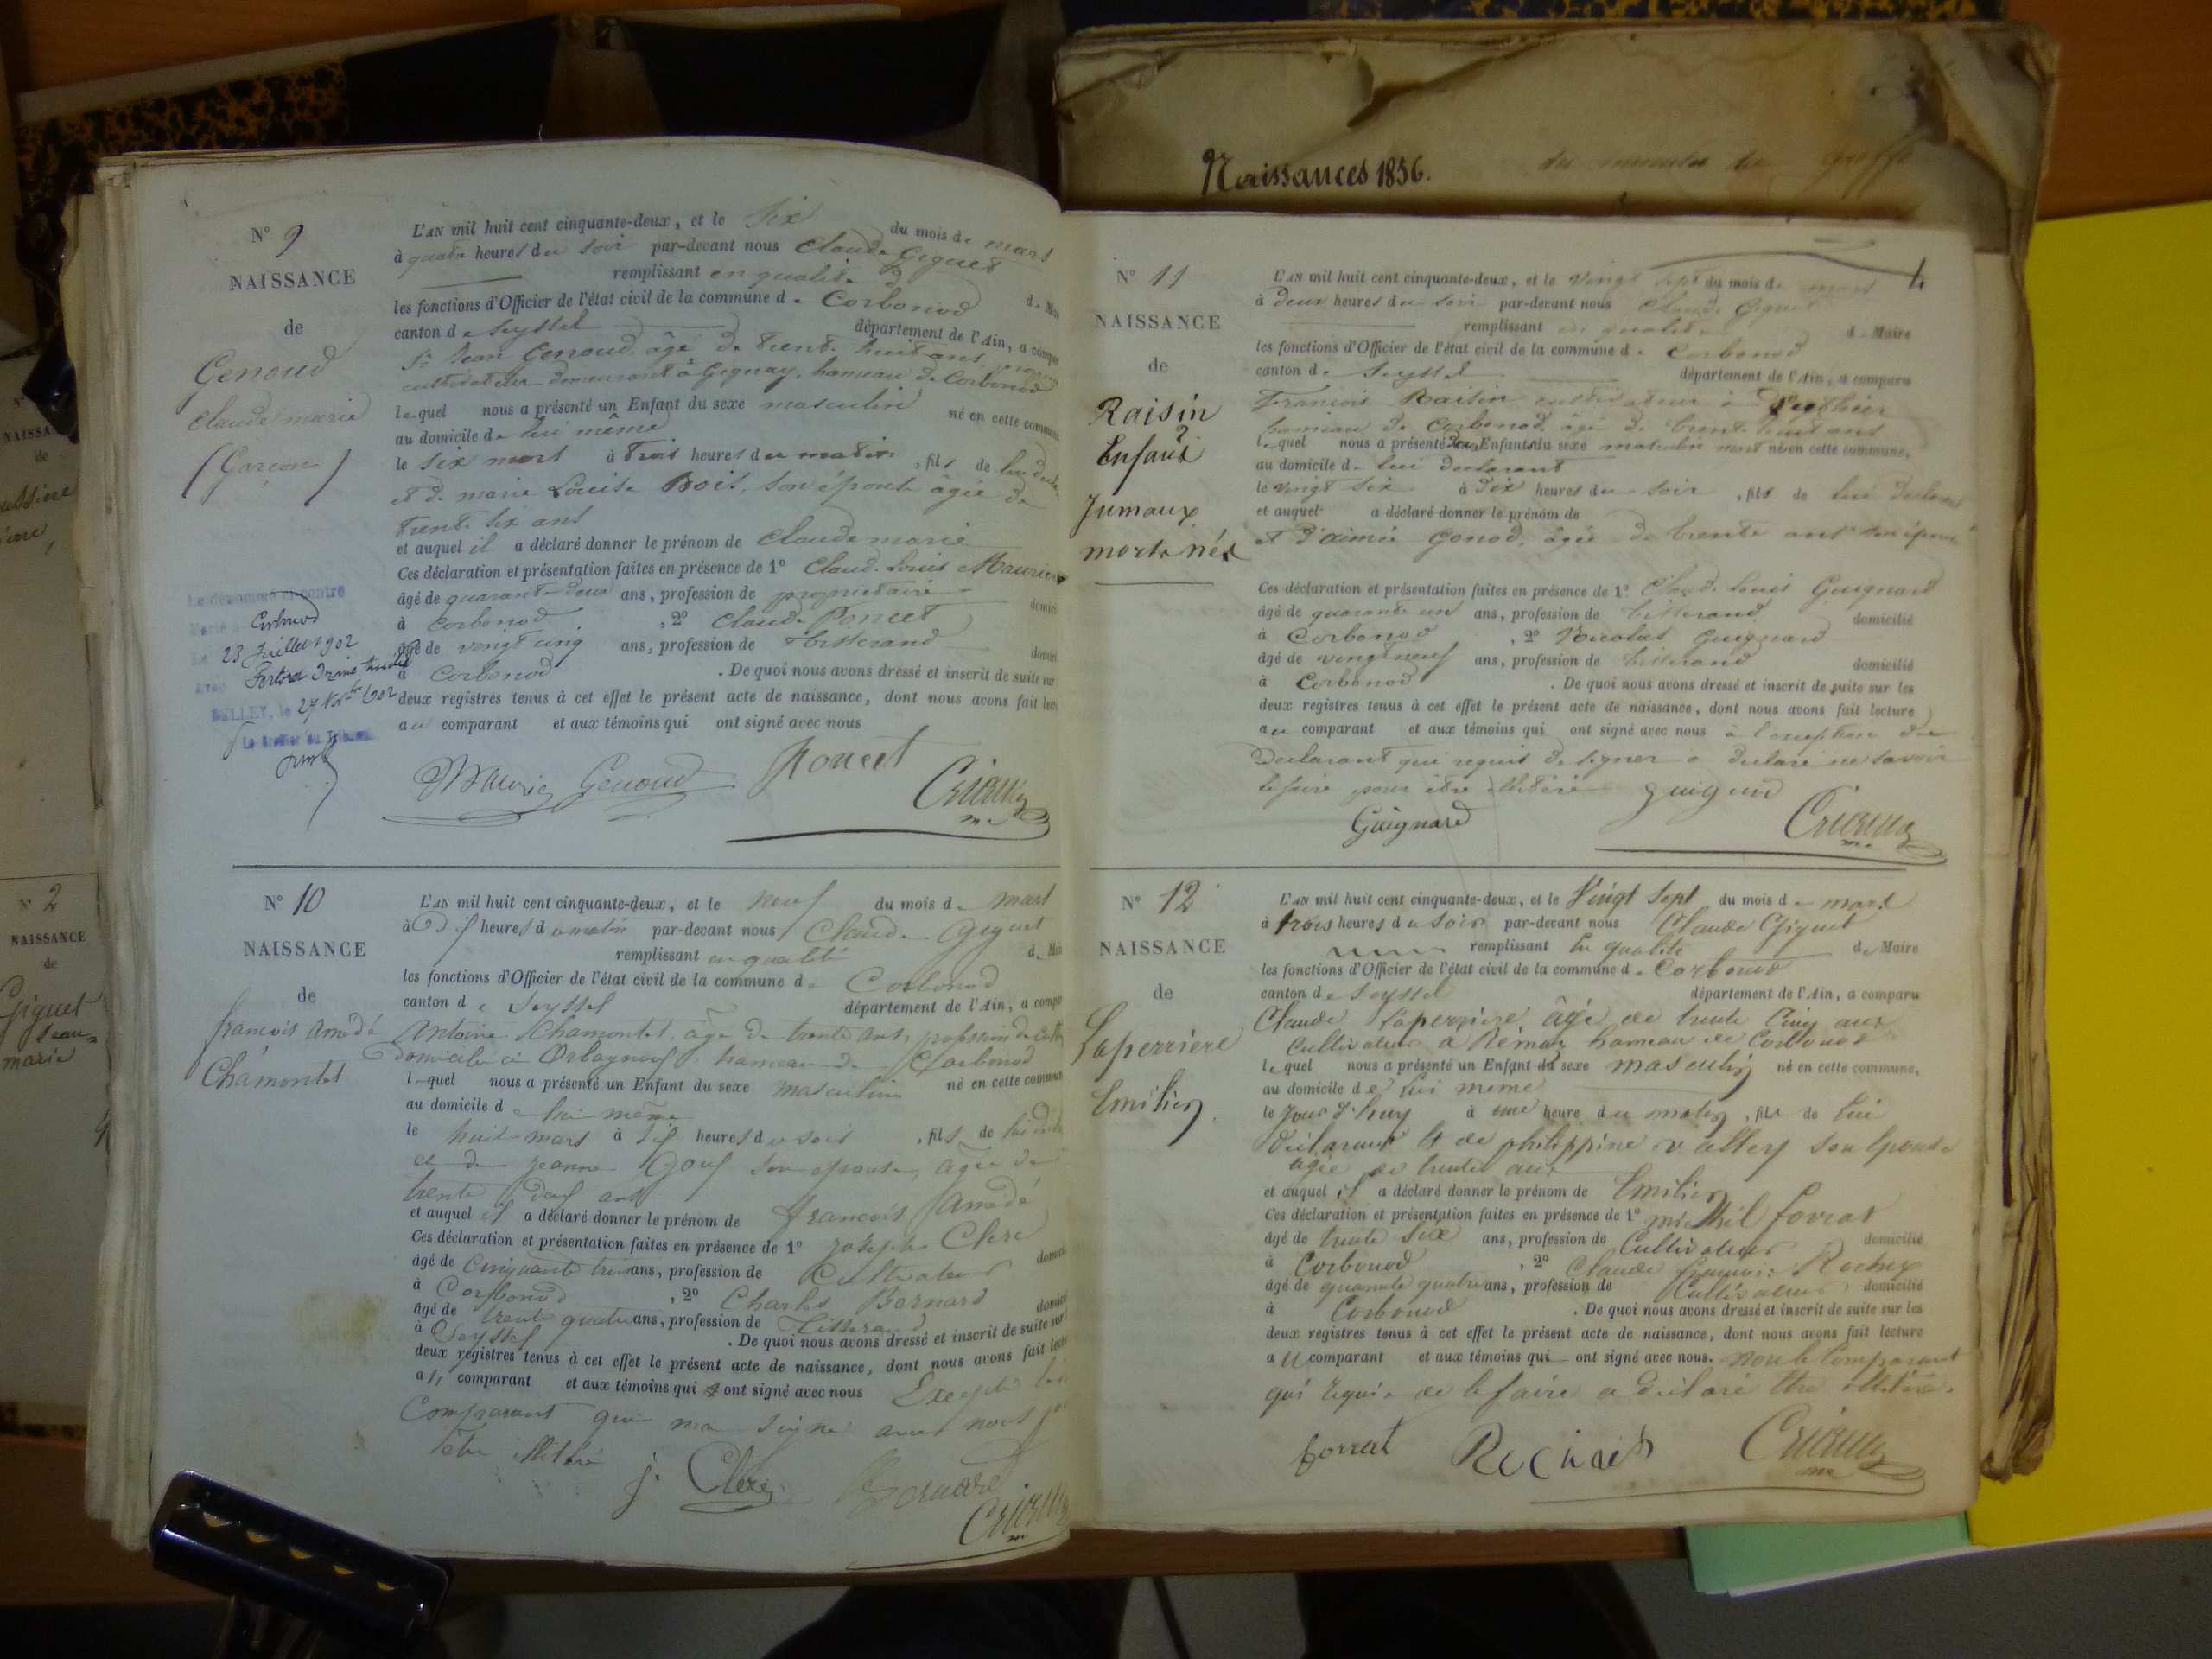 Naissances 1856.
N° 9
NAISSANCE
de
Genoud
Claude marie
(Garçon)
L'AN mil huit cent cinquante-deux, et le Six du mois de mars
à quatre heures du soir par-devant nous Claude Giguet
remplissant en qualité d
les fonctions d'Officier de l'état civil de la commune de Corbonod
canton de Seyssel département de l'Ain, a
Sr Jean Genoud, âgé de trente huit ans,
cultivateur demeurant à Gignay, hameau de Corbonod
lequel nous a présenté un Enfant du sexe masculin né en cette
au domicile de lui même
le Six mars à trois heures du matin, fils de lui
et de marie Louise Bois, son épouse âgée de
trente six ans
et auquel il a déclaré donner le prénom de Claude marie
Ces déclaration et présentation faites en présence de 1° Claude Louis Maurier
âgé de quarante-deux ans, profession de propriétaire
à Corbonod, 2° Claude Poncet
âgé de vingt cinq ans, profession de Tisserand
à Corbonod. De quoi nous avons dressé et inscrit de suite
deux registres tenus à cet effet le présent acte de naissance, dont nous avons fait
au comparant et aux témoins qui ont signé avec nous
Genoud Poncet
Corbonod
23 Juillet 1902
27 1902
BELLEY, le
N° 10
NAISSANCE
de
françois Amédé
Chamontet
L'AN mil huit cent cinquante-deux, et le neuf du mois de mars
à dix heures du matin par-devant nous Claude Giguet
remplissant en qualité de
les fonctions d'Officier de l'état civil de la commune de Corbonod
canton de Seyssel département de l'Ain, a
Antoine Chamontet, âgé de trente ans, profession de
domicilié à Orbagnoux hameau de Corbonod
lequel nous a présenté un Enfant du sexe masculin né en cette
au domicile de lui même
le huit mars à dix heures du soir, fils de lui
et de jeanne Goux son épouse, âgée de
trente deux ans
et auquel il a déclaré donner le prénom de françois Amédé
Ces déclaration et présentation faites en présence de 1° joseph Clerc
âgé de Cinquante trois ans, profession de Cultivateur
à Corbonod, 2° Charles Bernard
âgé de trente quatre ans, profession de Tisserand
à Seyssel. De quoi nous avons dressé et inscrit de suite sur
deux registres tenus à cet effet le présent acte de naissance, dont nous avons fait
au comparant et aux témoins qui ont signé avec nous Excepté le
Comparant qui n'a signé avec nous
être illitéré
j. Clerc
N° 11
NAISSANCE
de
Raisin
2
Enfans
Jumaux
morts nés
L'AN mil huit cent cinquante-deux, et le vingt sept du mois de mars
à deux heures du soir par-devant nous Claude Giguet
remplissant en qualité de Maire
les fonctions d'Officier de l'état civil de la commune de Corbonod
canton de Seyssel département de l'Ain, a comparu
François Raisin cultivateur à
hameau de Corbonod, âgé de trente huit ans
lequel nous a présenté deux Enfants du sexe masculin mort né en cette commune,
au domicile de lui déclarant
le vingt six à dix heures du soir, fils de lui déclarant
et auquel a déclaré donner le prénom de
et d'aimée Gonod, âgée de trente ans son épouse
Ces déclaration et présentation faites en présence de 1° Claude Louis Guignard
âgé de quarante un ans, profession de tisserand domicilié
à Corbonod, 2° Nicolas Guignard
âgé de vingt neuf ans, profession de tisserand domicilié
à Corbonod. De quoi nous avons dressé et inscrit de suite sur les
deux registres tenus à cet effet le présent acte de naissance, dont nous avons fait lecture
au comparant et aux témoins qui ont signé avec nous à l'exception du
Déclarant qui requis de signer a déclaré ne savoir
le faire pour être illitéré
Guignard
N° 12
NAISSANCE
de
Laperrière
Emilien
L'AN mil huit cent cinquante-deux, et le Vingt Sept du mois de mars
à trois heures du soir par-devant nous Claude Giguet
remplissant en qualité de Maire
les fonctions d'Officier de l'état civil de la commune de Corbonod
canton de Seyssel département de l'Ain, a comparu
Claude Laperrière âgé de trente Cinq ans
Cultivateur à Rémoz hameau de Corbonod
lequel nous a présenté un Enfant du sexe masculin né en cette commune,
au domicile de lui meme
le jour d'huy à une heure du matin, fils de lui
déclarant et de philippine vallery son épouse
agée de trente ans
et auquel il a déclaré donner le prénom de Emilien
Ces déclaration et présentation faites en présence de 1° michel forrat
âgé de trente six ans, profession de Cultivateur domicilié
à Corbonod, 2° Claude françois Rochex
âgé de quarante quatre ans, profession de Cultivateur domicilié
à Corbonod. De quoi nous avons dressé et inscrit de suite sur les
deux registres tenus à cet effet le présent acte de naissance, dont nous avons fait lecture
au comparant et aux témoins qui ont signé avec nous. non le Comparant
qui requis de le faire a déclaré être illitéré.
forrat
N° 2
NAISSANCE
de
Giguet
Jean=
marie